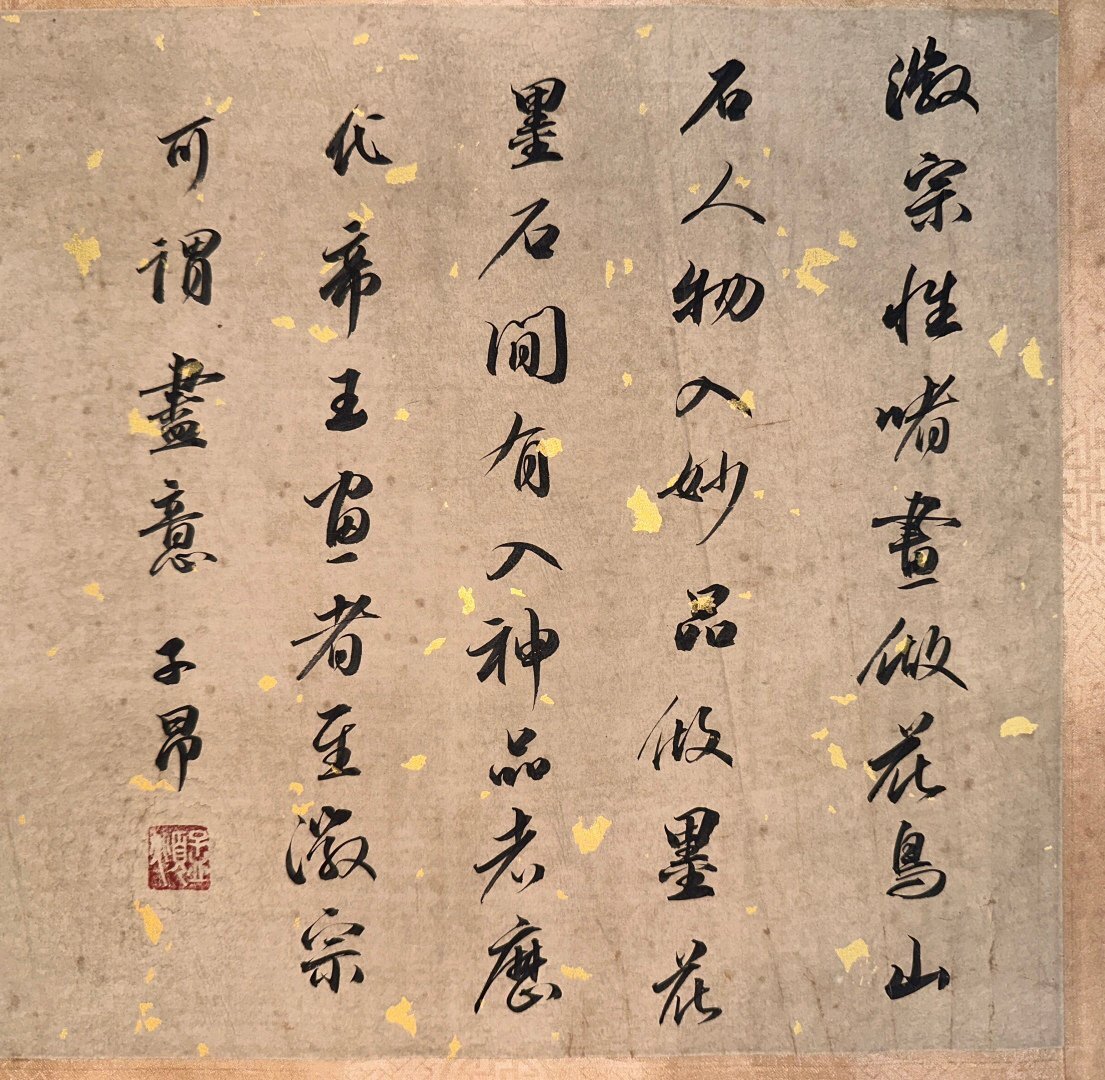 徽宗性嗜畫做花鳥山
石人物入妙品做墨花
墨石間有入神品者歷
代帝王畫者至徽宗
可謂盡意子昂